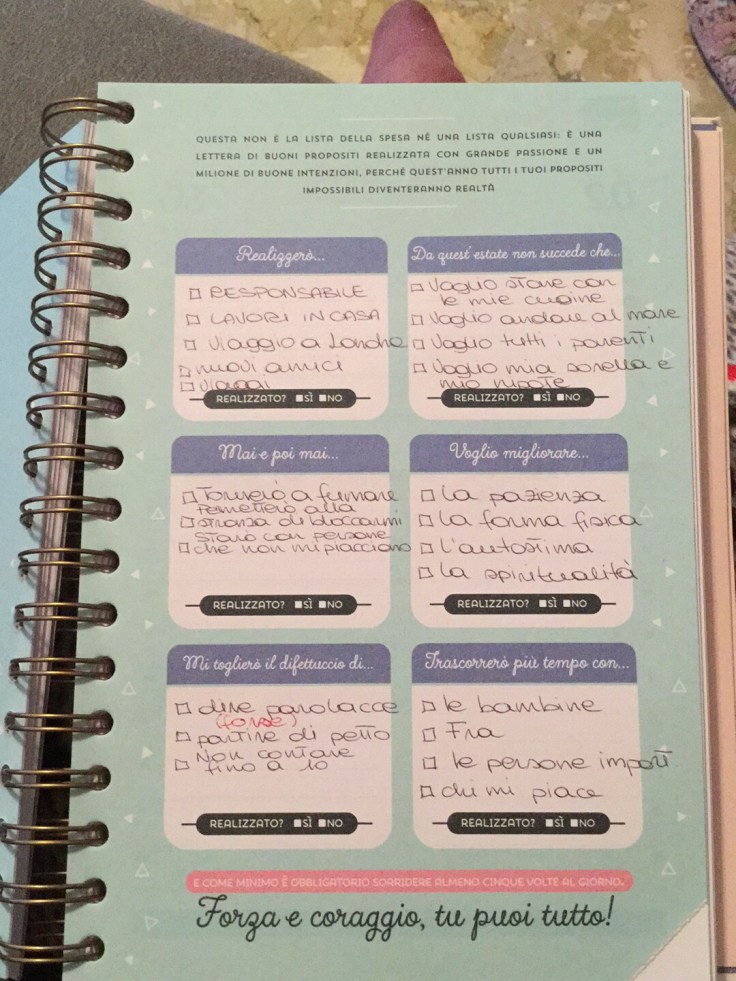 QUESTA NON È LA LISTA DELLA SPESA NÉ UNA LISTA QUALSIASI: È UNA
LETTERA DI BUONI PROPOSITI REALIZZATA CON GRANDE PASSIONE E UN
MILIONE DI BUONE INTENZIONI, PERCHÉ QUEST'ANNO TUTTI I TUOI PROPOSITI
IMPOSSIBILI DIVENTERANNO REALTÀ
Realizzerò...
RESPONSABILE
LAVORI IN CASA
Viaggio a Londra
nuovi amici
Viaggi
REALIZZATO? SÌ NO
Da quest'estate non succede che...
Voglio stare con
le mie cugine
Voglio andare al mare
Voglio tutti i parenti
Voglio mia sorella e
mio nipote
REALIZZATO? SÌ NO
Mai e poi mai...
Tornerò a fumare
Permetterò alla
stronza di bloccarmi
Starò con persone
che non mi piacciono
REALIZZATO? SÌ NO
Voglio migliorare...
la pazienza
la forma fisica
l'autostima
la spiritualità
REALIZZATO? SÌ NO
Mi toglierò il difettuccio di...
dire parolacce
(forse)
partire di petto
Non contare
fino a 10
REALIZZATO? SÌ NO
Trascorrerò più tempo con...
le bambine
Fra
le persone import
chi mi piace
REALIZZATO? SÌ NO
E COME MINIMO È OBBLIGATORIO SORRIDERE ALMENO CINQUE VOLTE AL GIORNO.
Forza e coraggio, tu puoi tutto!